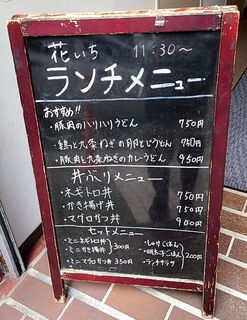 花いち 11:30～
ランチメニュー
おすすめ!!
・豚肉のハリハリうどん 750円
・鶏と九条ねぎの卵とじうどん 750円
・豚肉と九条ねぎのカレーうどん 950円
丼ぶりメニュー
・ネギトロ丼 750円
・かき揚げ丼 750円
・マグロカツ丼 900円
セットメニュー
・ミニネギトロ丼
・ミニかき揚丼 300円
・ミニマグロカツ丼 350円
・しゃけごはん
・明太子ごはん 200円
・ランチサラダ